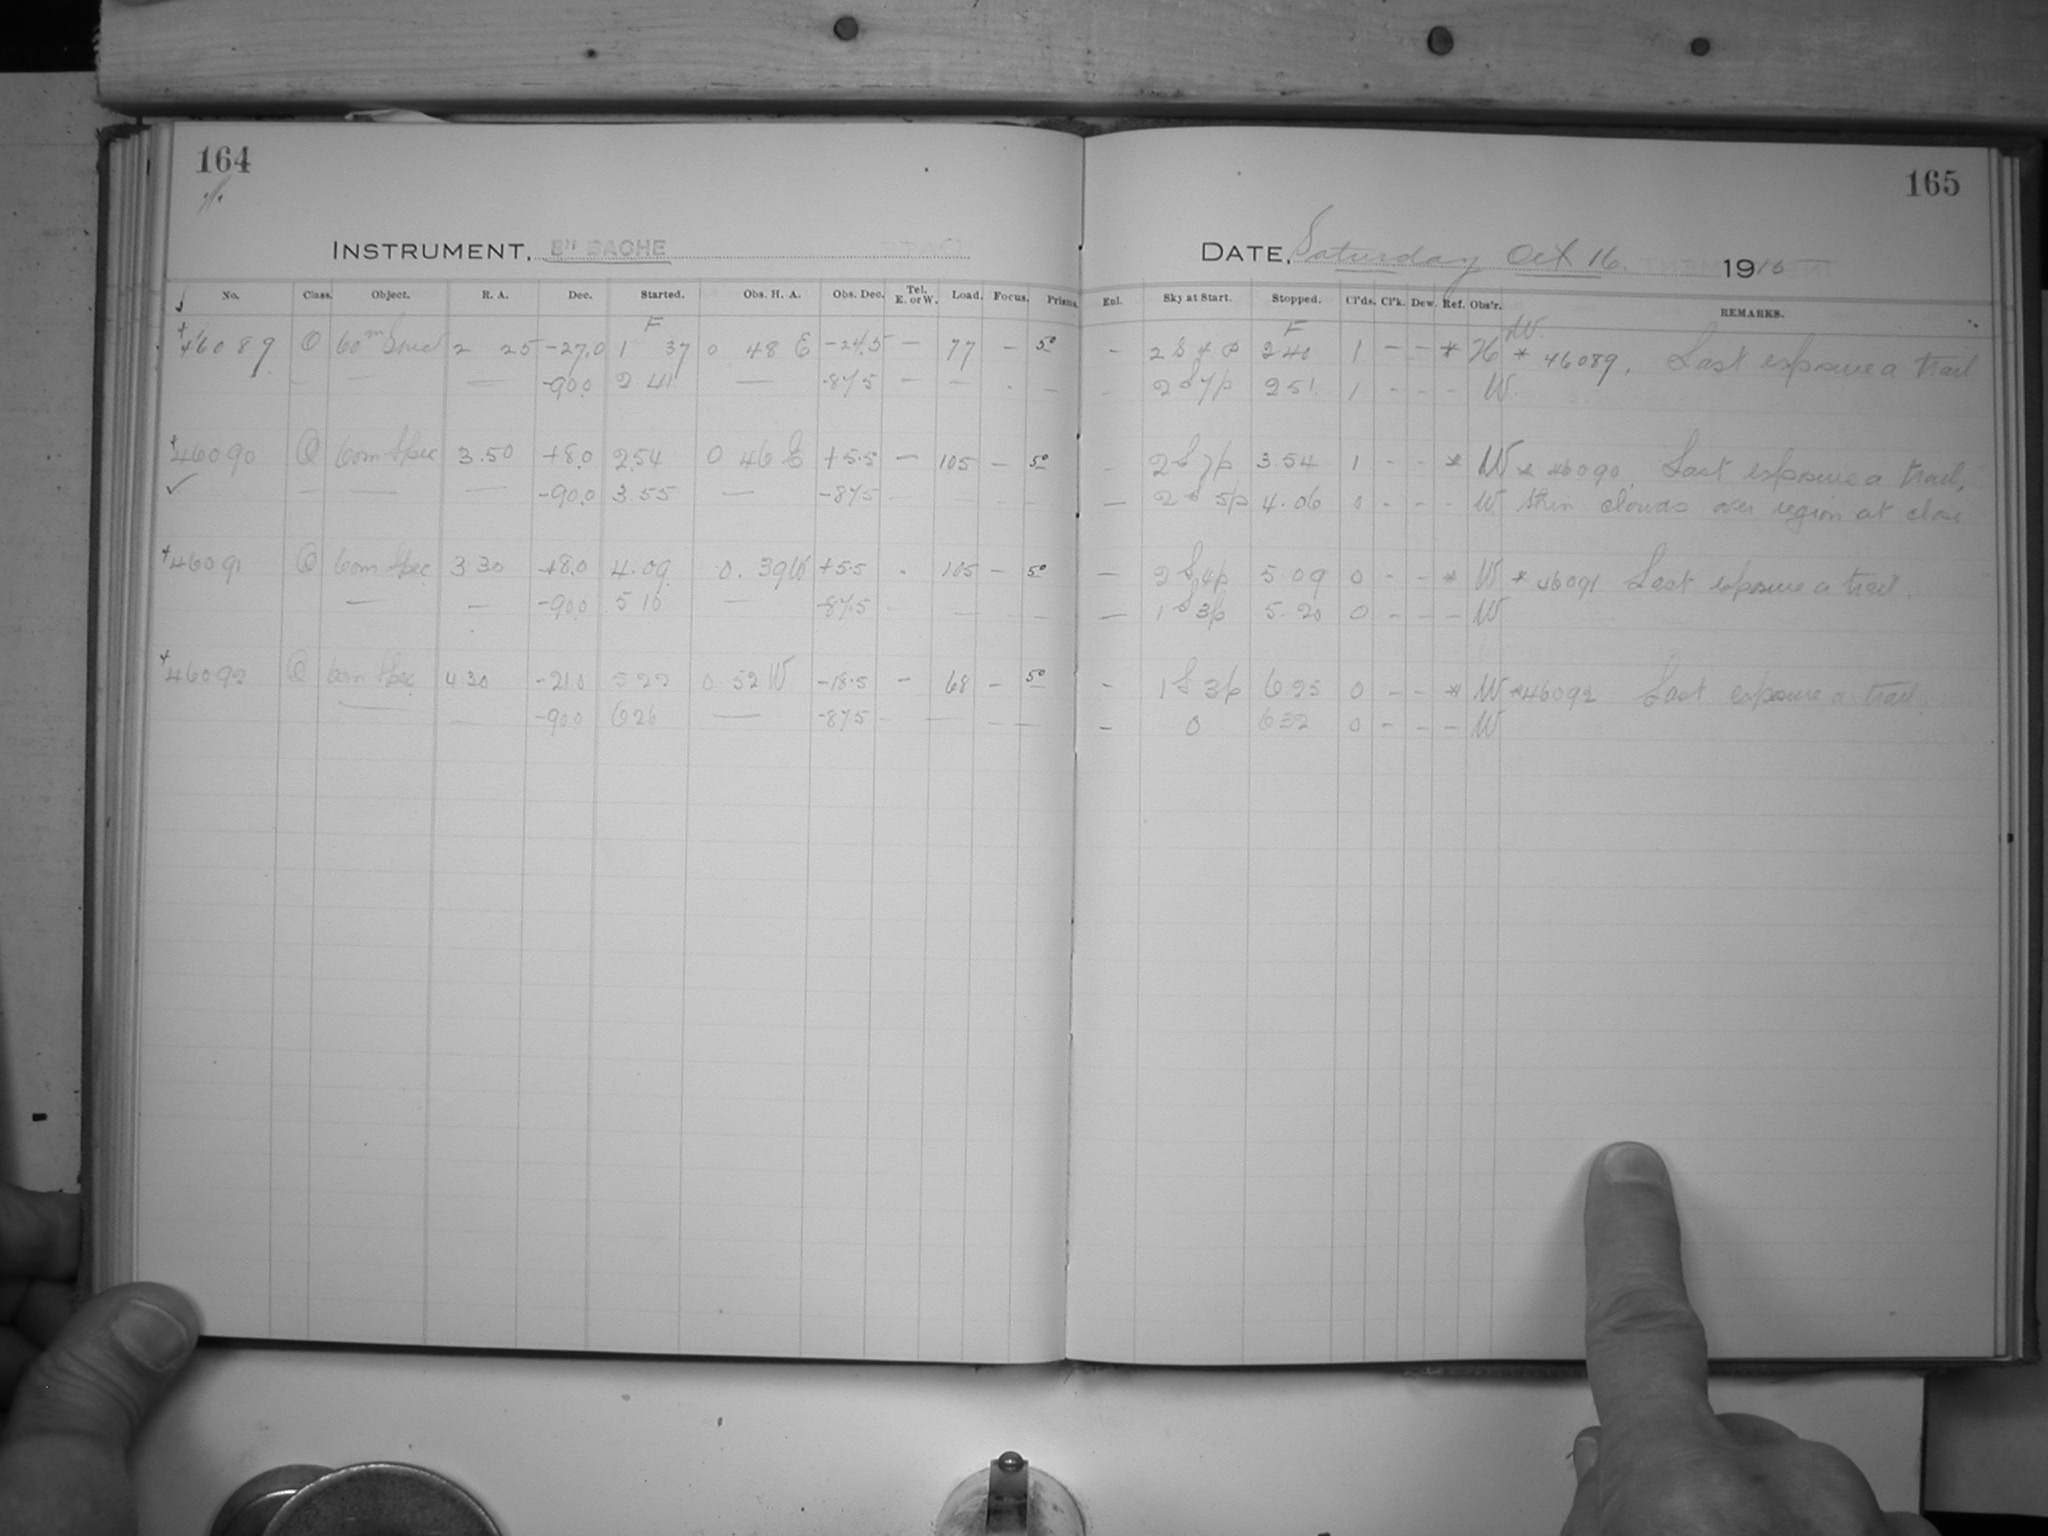 164
165
INSTRUMENT, 8" BACHE
DATE, Saturday Oct 16. 1915
No. Class. Object. R. A. Dec. Started. Obs. H. A. Obs. Dec. Tel. E. or W. Load. Focus. Prisms. Enl. Sky at Start. Stopped. Cl'ds. Cl'k. Dew. Ref. Obs'r. REMARKS.
F F W.
46089 Q 60m Spec 2 25 -27.0 1 37 0 48 E -24.5 — 77 — 5° - 2 S 4 p 2 40 1 - - * * 46089. Last exposure a trail
— — — -90.0 2.41 — -87.5 — — - — - 2 S 7p 2 51 1 - - - W.
46090 Q 60m Spec 3.50 +8.0 2.54 0 46 E +5.5 — 105 — 5° - 2 S 7p 3.54 1 - - * W * 46090. Last exposure a trail,
— — — -90.0 3.55 — -87.5 — — — — — 2 S 5p 4.06 0 - - - W. thin clouds over region at close
46091 Q 60m Spec 3 30 +8.0 4.09 0.39W +5.5 - 105 — 5° — 2 S 4p 5 09 0 - - * W * 46091 Last exposure a trail.
— — -90.0 5 10 — -87.5 — — — — 1 S 3p 5.20 0 - - - W
46092 Q 60m Spec 4 30 -21.0 5 22 0 52 W -18.5 - 68 — 5° - 1 S 3p 6 25 0 - - * W *46092 Last exposure a trail.
— — -90.0 6 26 — -87.5 — — — — - 0 6 32 0 - - - W